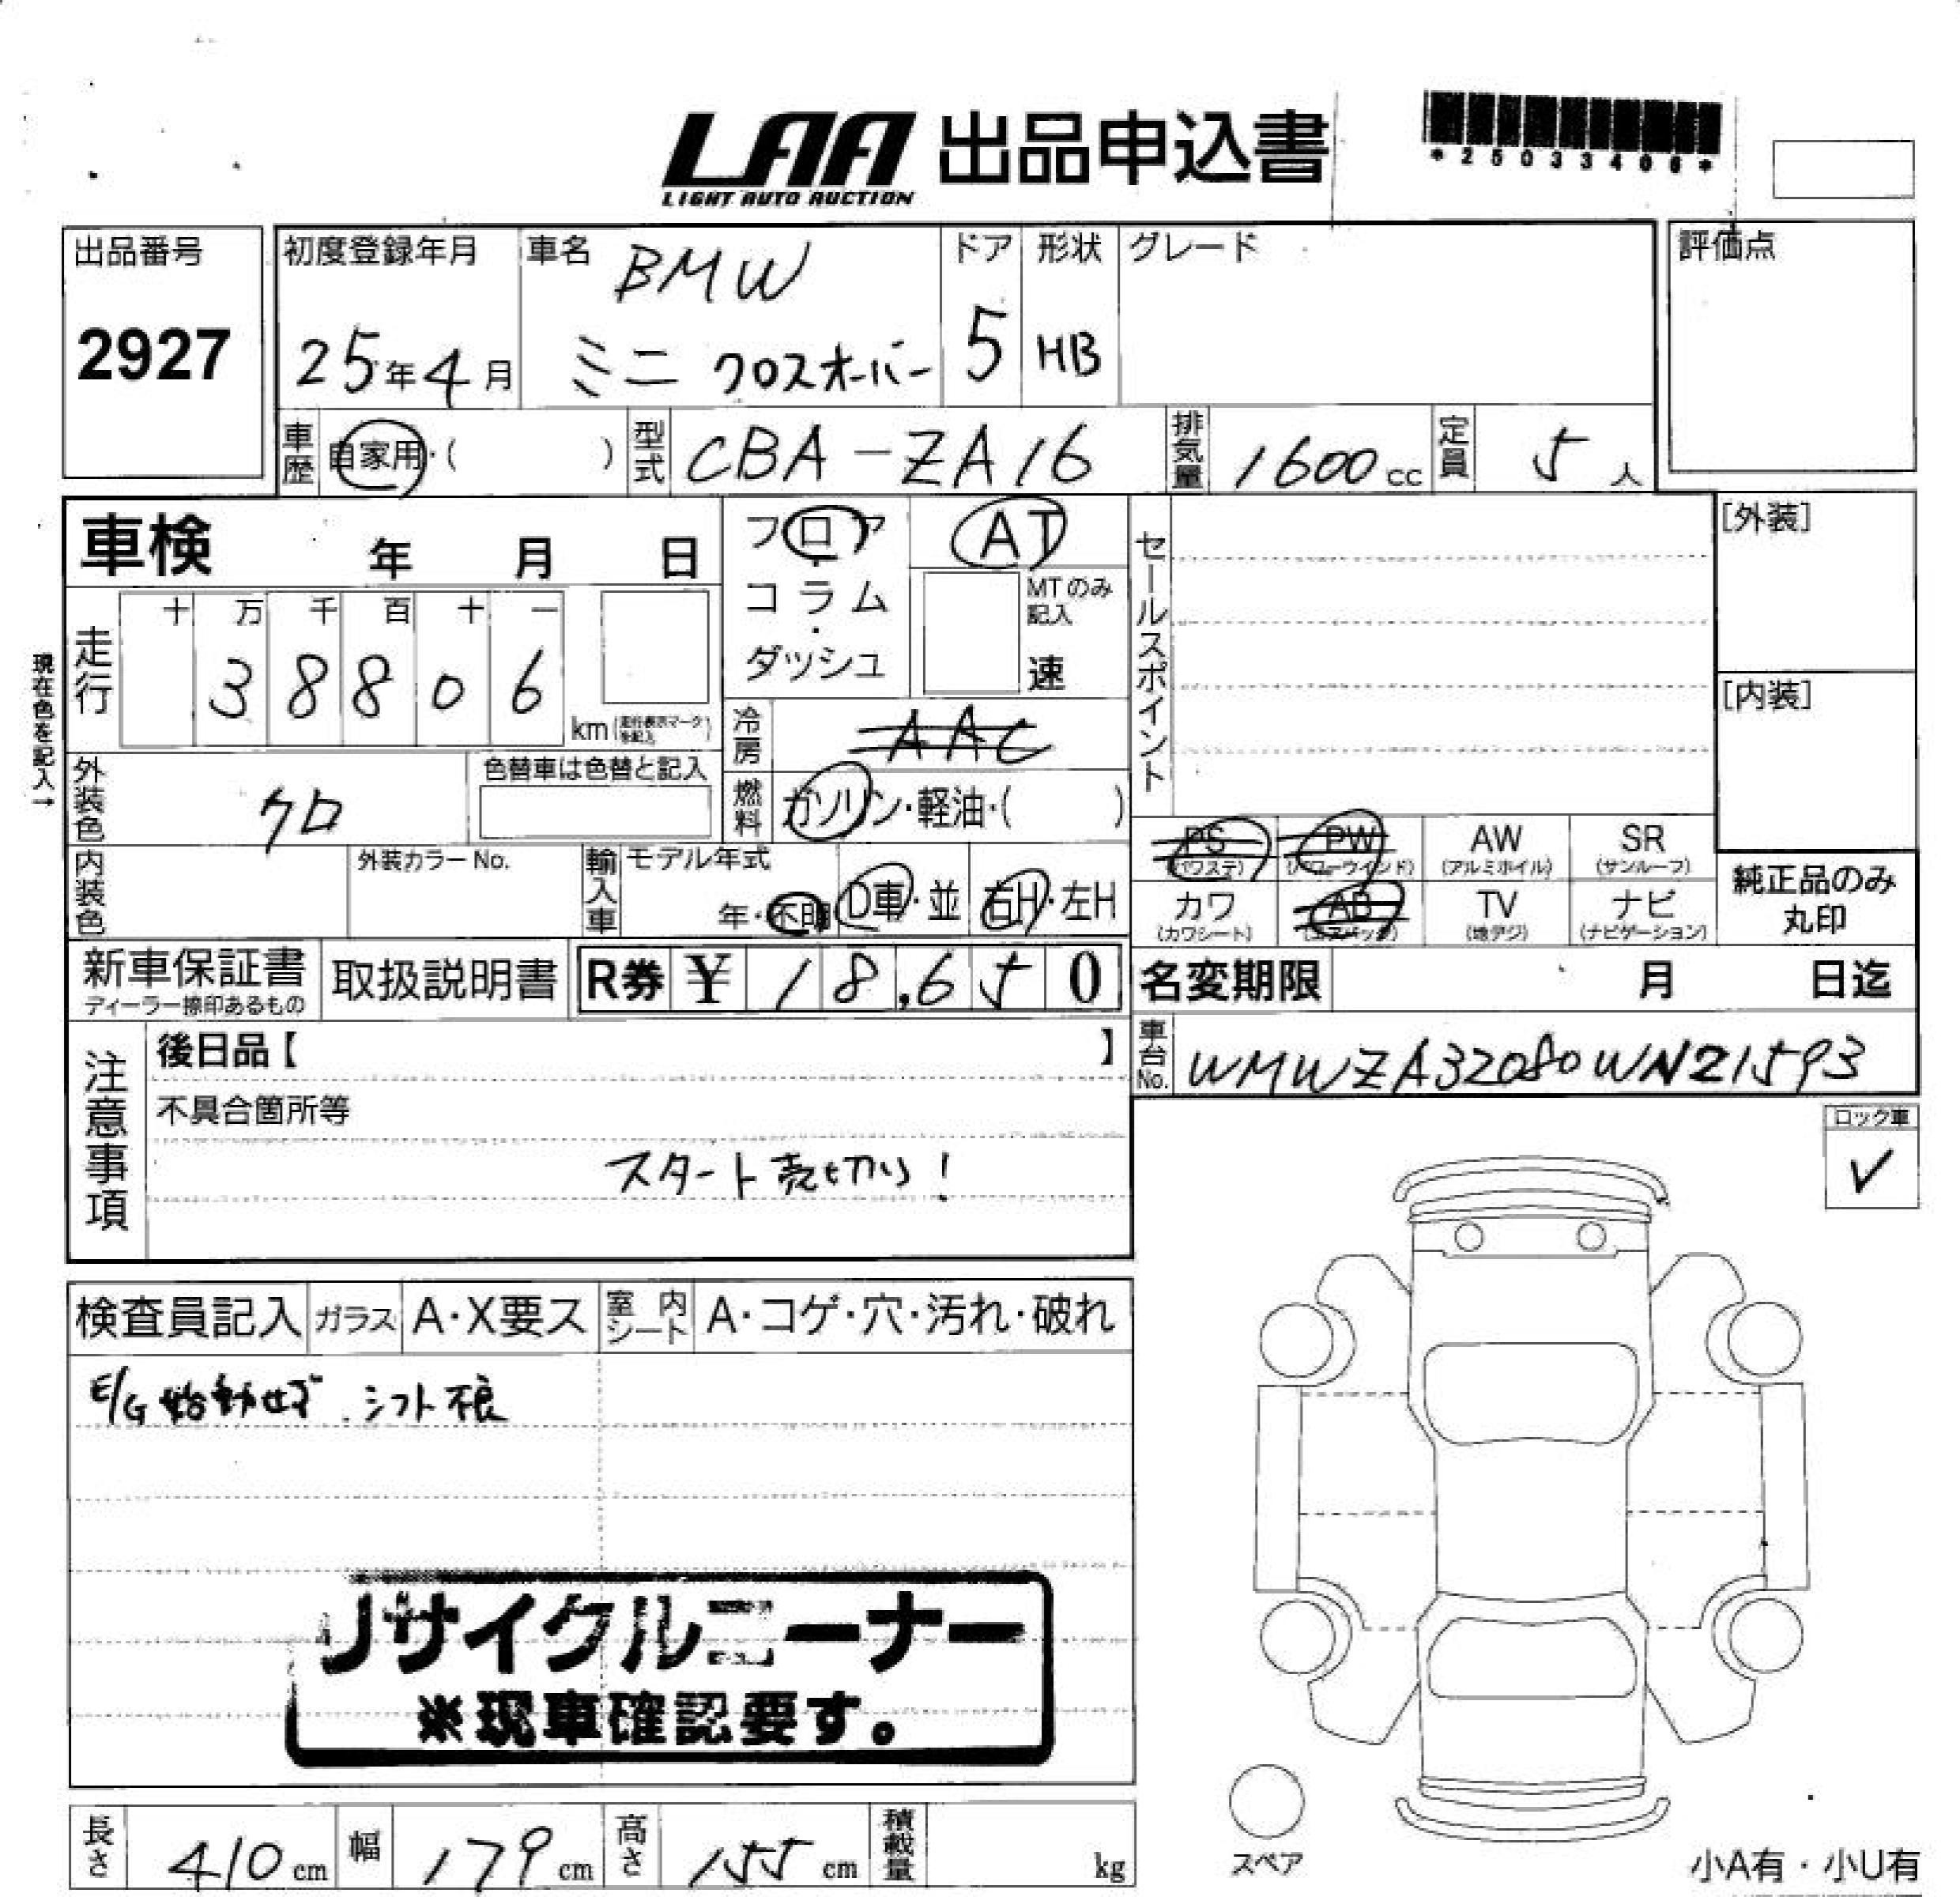 LAA 出品申込書
LIGHT AUTO AUCTION
*25033406*
出品番号
2927
初度登録年月
25年4月
車名 BMW
ミニ クロスオーバー
ドア
5
形状
HB
グレード
評価点
車歴 自家用・( )
型式 CBA-ZA16
排気量 1600cc
定員 5人
車検 年 月 日
フロア・コラム・ダッシュ
AT
MTのみ記入
速
セールスポイント
[外装]
[内装]
現在色を記入→
走行
十 万 千 百 十 一
3 8 8 0 6
km(走行表示マークを記入)
冷房 AAC
燃料 ガソリン・軽油・( )
外装色 クロ
色替車は色替と記入
内装色
外装カラーNo.
輸入車
モデル年式
年・不明
D車・並
右H・左H
PS (パワステ)
PW (パワーウインド)
AW (アルミホイル)
SR (サンルーフ)
カワ (カワシート)
AB (エアバッグ)
TV (地デジ)
ナビ (ナビゲーション)
純正品のみ
丸印
新車保証書
ディーラー捺印あるもの
取扱説明書
R券 ¥ 18,650
名変期限 月 日迄
車台No. WMWZA32080WN21593
注意事項
後日品【 】
不具合箇所等
スタート売切り!
ロック車
✓
検査員記入
ガラス A・X要ス
室内シート A・コゲ・穴・汚れ・破れ
E/G始動せず、シフト不良
リサイクルコーナー
※現車確認要す。
長さ 410cm
幅 179cm
高さ 155cm
積載量 kg
スペア
小A有・小U有